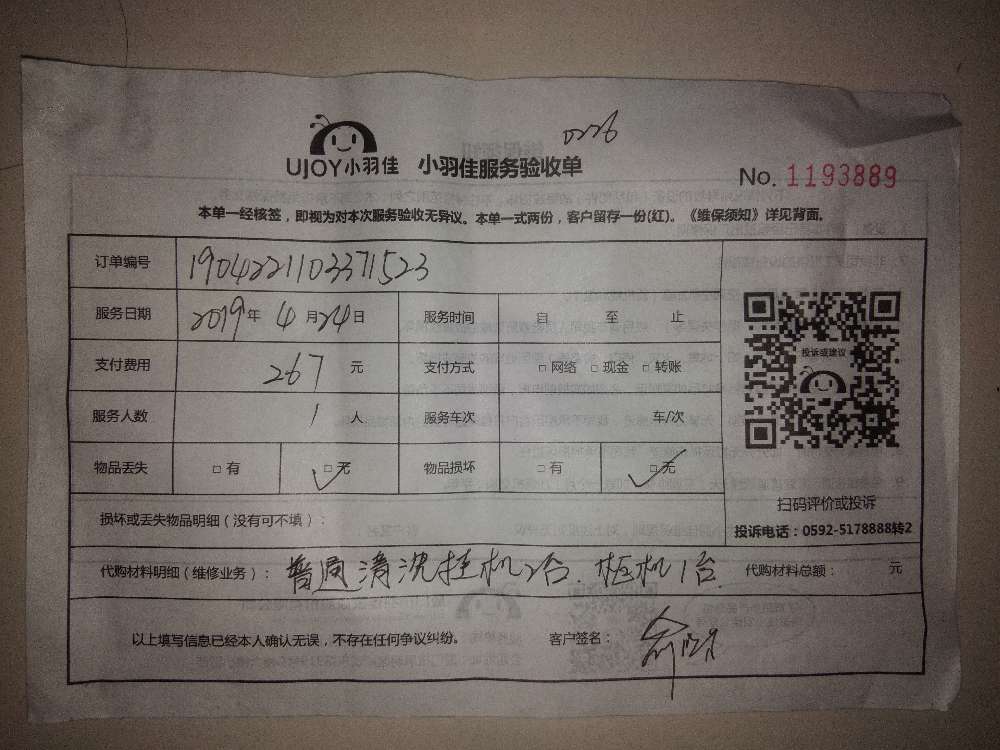 0226
UJOY小羽佳 小羽佳服务验收单
No. 1193889
本单一经核签，即视为对本次服务验收无异议。本单一式两份，客户留存一份(红)。《维保须知》详见背面。
订单编号 1904221103371523
服务日期 2019年4月24日 服务时间 自 至 止
投诉或建议
支付费用 267 元 支付方式 □ 网络 □ 现金 □ 转账
服务人数 1 人 服务车次 车/次
物品丢失 □ 有 □ 无 物品损坏 □ 有 □ 无
扫码评价或投诉
损坏或丢失物品明细（没有可不填）：
投诉电话：0592-5178888转2
代购材料明细（维修业务）：普通清洗挂机2台.柜机1台. 代购材料总额： 元
以上填写信息已经本人确认无误，不存在任何争议纠纷。 客户签名：